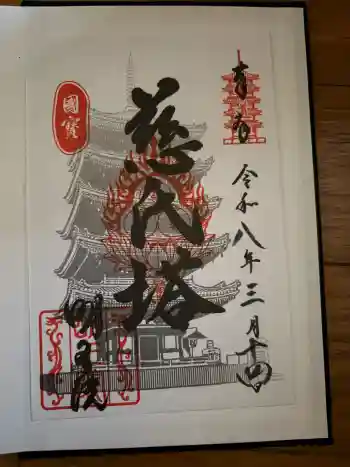 奉拝
令和八年三月十四
慈氏塔
國寳
明王院